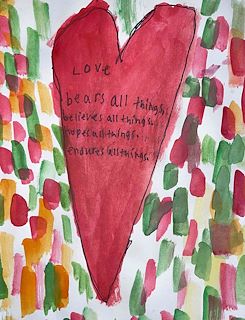 Love
bears all things,
believes all things,
hopes all things,
endures all things.